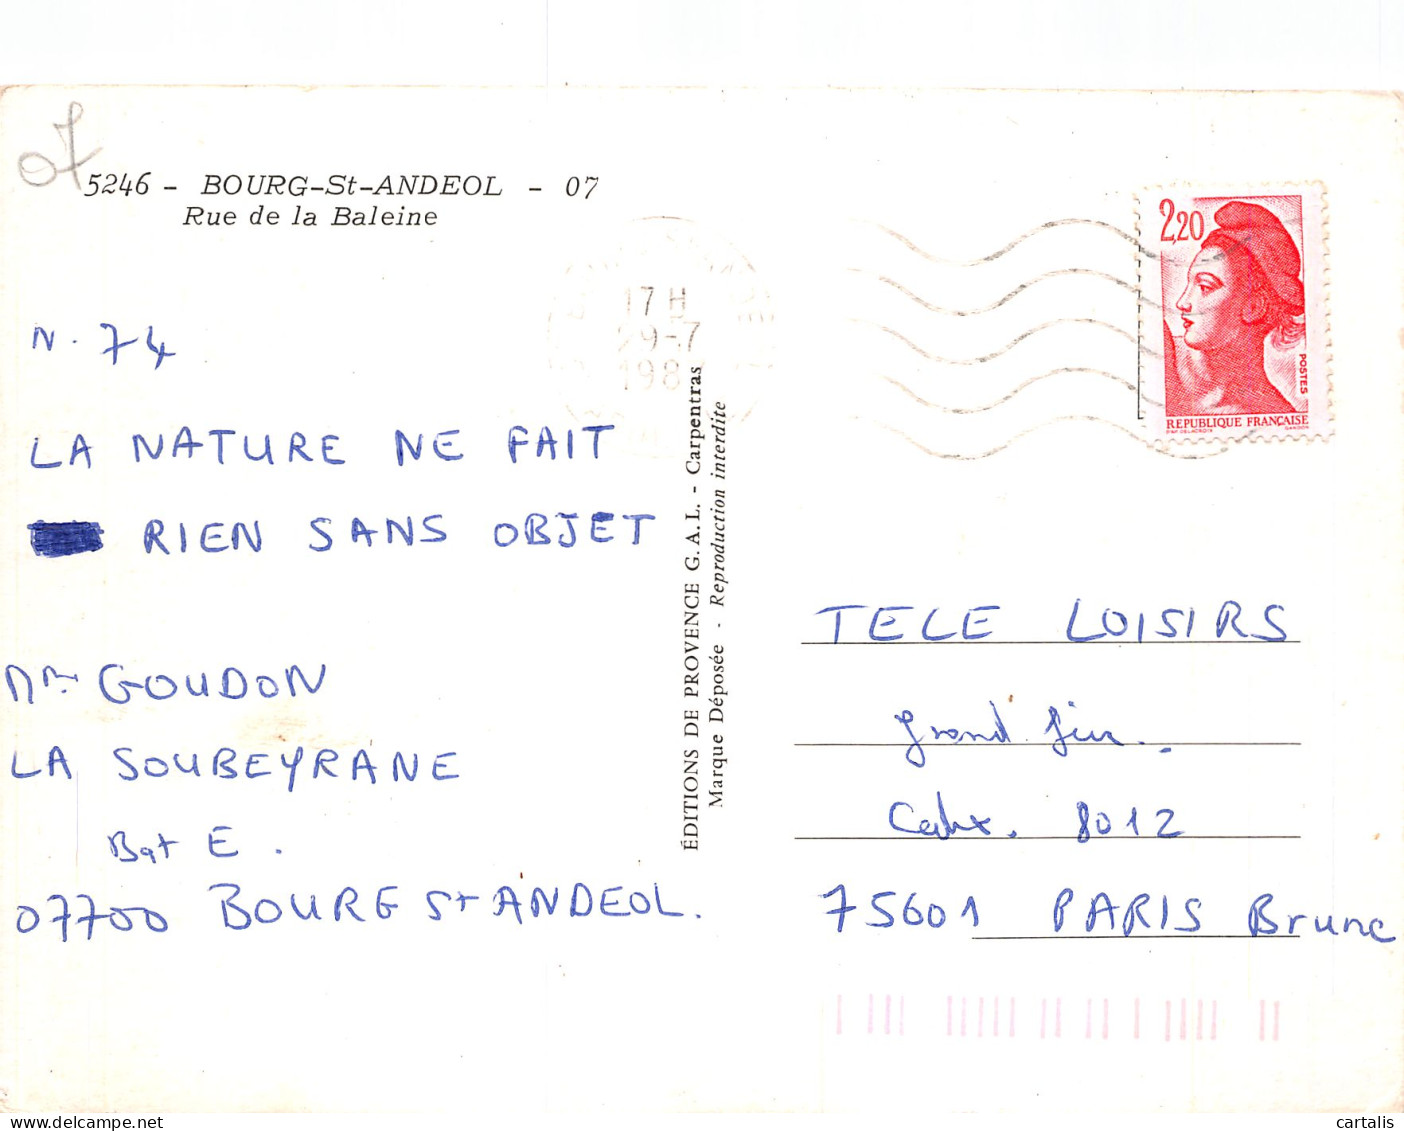 07
5246 - BOURG-St-ANDEOL - 07
Rue de la Baleine
N. 74
LA NATURE NE FAIT
RIEN SANS OBJET
Mme GOUDON
LA SOUBEYRANE
Bat E.
07700 BOURG St ANDEOL.
ÉDITIONS DE PROVENCE G.A.L. - Carpentras
Marque Déposée - Reproduction interdite
17 H
29-7
198
2,20
POSTES
REPUBLIQUE FRANÇAISE
TELE LOISIRS
grand jeu
Cedex. 8012
75601 PARIS Brune
cartalis
www.delcampe.net